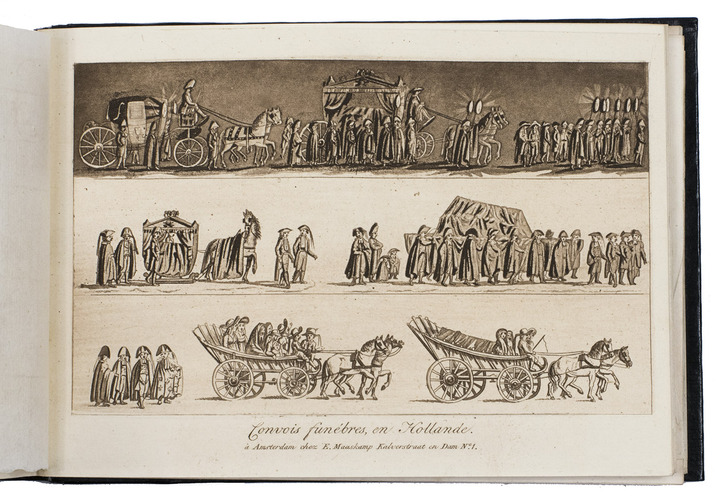 Convois funèbres, en Hollande.
à Amsterdam chez E. Maaskamp Kalverstraat en Dam No. 1.